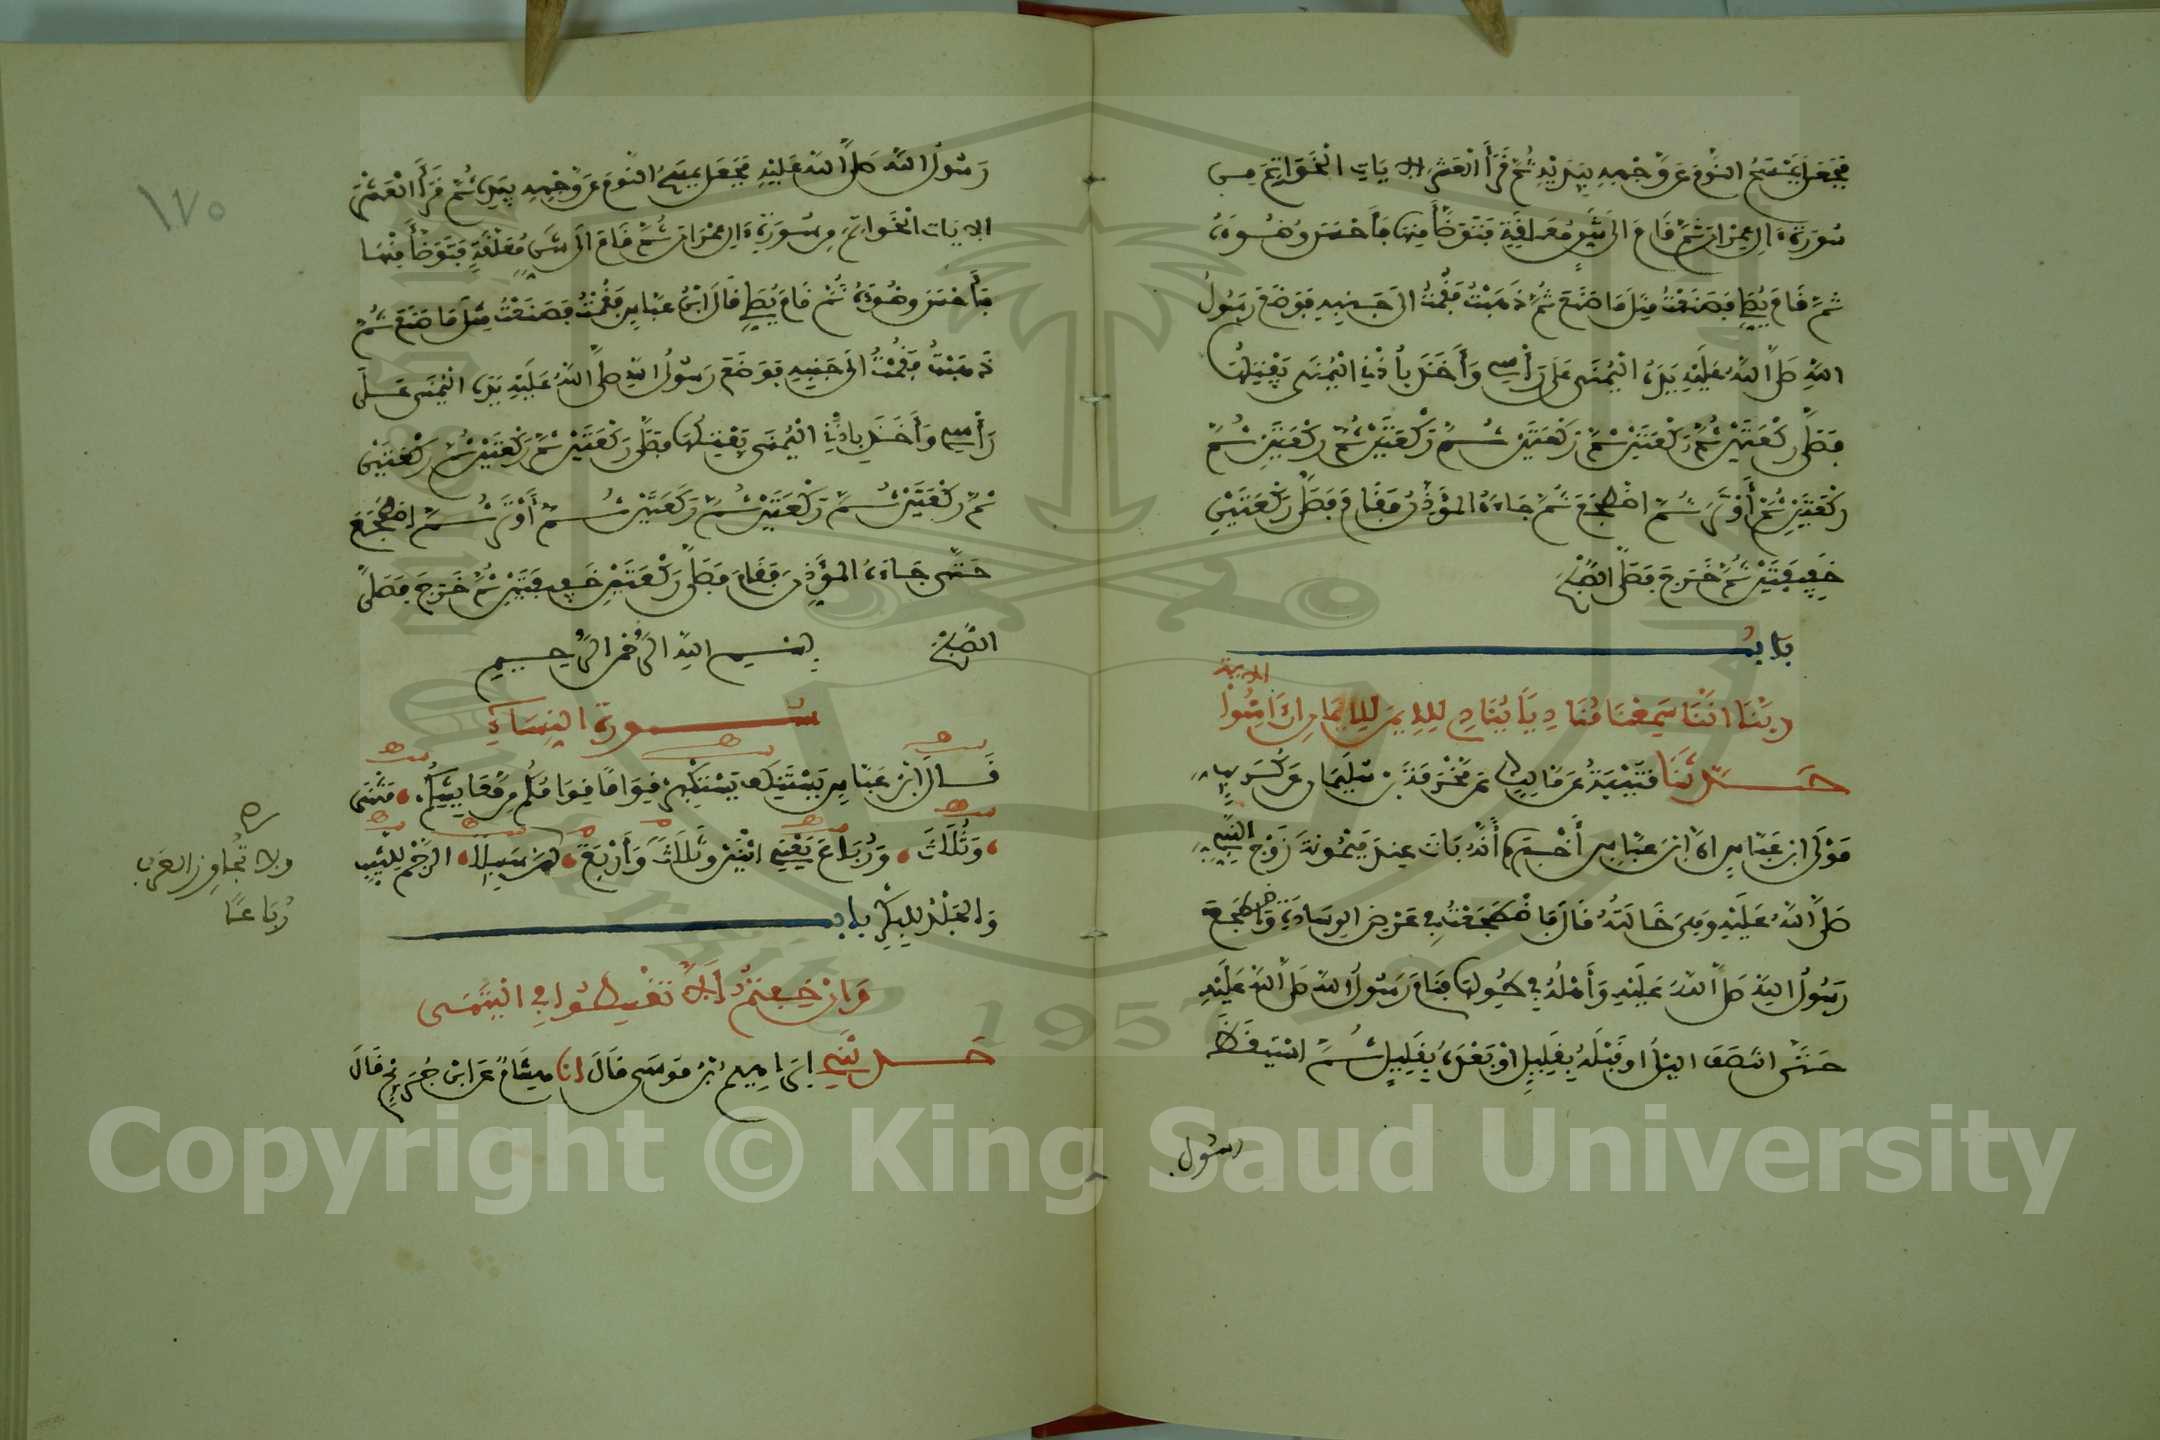 فَجَعَلَ يَمْسَحُ النَّوْمَ عَنْ وَجْهِهِ بِيَدَيْهِ ثُمَّ قَرَأَ الْعَشْرَ الايَاتِ الْخَوَاتِمَ مِن
سُورَةِ ءَالِ عِمْرَانَ ثُمَّ قَامَ الَى شَنٍّ مُعَلَّقَةٍ فَتَوَضَّأَ مِنْهَا فَأَحْسَنَ وُضُوءَهُ
ثُمَّ قَامَ يُصَلِّي فَصَنَعْتُ مِثْلَ مَا صَنَعَ ثُمَّ ذَهَبْتُ فَقُمْتُ الَى جَنْبِهِ فَوَضَعَ رَسُولُ
اللهِ صَلَّى اللهُ عَلَيْهِ يَدَهُ الْيُمْنَى عَلَى رَأْسِي وَأَخَذَ بِأُذُنِي الْيُمْنَى يَفْتِلُهَا
فَصَلَّى رَكْعَتَيْنِ ثُمَّ رَكْعَتَيْنِ ثُمَّ رَكْعَتَيْنِ ثُمَّ رَكْعَتَيْنِ ثُمَّ رَكْعَتَيْنِ ثُمَّ
رَكْعَتَيْنِ ثُمَّ أَوْتَرَ ثُمَّ اضْطَجَعَ ثُمَّ جَاءَهُ الْمُؤَذِّنُ فَقَامَ فَصَلَّى رَكْعَتَيْنِ
خَفِيفَتَيْنِ ثُمَّ خَرَجَ فَصَلَّى الصُّبْحَ
بَابُ
رَبَّنَا انَّنَا سَمِعْنَا مُنَادِيًا يُنَادِي لِلايمَانِ أَنَ امِنُوا الاية
حَدَّثَنَا قُتَيْبَةُ عَن مَّالِكٍ عَن مَّخْرَمَةَ بْنِ سُلَيْمَانَ عَن كُرَيْبٍ
مَوْلَى ابْنِ عَبَّاسٍ انَّ ابْنَ عَبَّاسٍ أَخْبَرَهُ أَنَّهُ بَاتَ عِنْدَ مَيْمُونَةَ زَوْجِ النَّبِيِّ
صَلَّى اللهُ عَلَيْهِ وَهِيَ خَالَتُهُ قَالَ فَاضْطَجَعْتُ فِي عَرْضِ الْوِسَادَةِ وَاضْطَجَعَ
رَسُولُ اللهِ صَلَّى اللهُ عَلَيْهِ وَأَهْلُهُ فِي طُولِهَا فَنَامَ رَسُولُ اللهِ صَلَّى اللهُ عَلَيْهِ
حَتَّى انتَصَفَ اللَّيْلُ اوْ قَبْلَهُ بِقَلِيلٍ اوْ بَعْدَهُ بِقَلِيلٍ ثُمَّ اسْتَيْقَظَ
رسُول
١٧٥
رَسُولُ اللهِ صَلَّى اللهُ عَلَيْهِ فَجَعَلَ يَمْسَحُ النَّوْمَ عَنْ وَجْهِهِ بِيَدِهِ ثُمَّ قَرَأَ الْعَشْرَ
الايَاتِ الْخَوَاتِمَ مِن سُورَةِ ءَالِ عِمْرَانَ ثُمَّ قَامَ الَى شَنٍّ مُعَلَّقَةٍ فَتَوَضَّأَ مِنْهَا
فَأَحْسَنَ وُضُوءَهُ ثُمَّ قَامَ يُصَلِّي قَالَ ابْنُ عَبَّاسٍ فَقُمْتُ فَصَنَعْتُ مِثْلَ مَا صَنَعَ ثُمَّ
ذَهَبْتُ فَقُمْتُ الَى جَنْبِهِ فَوَضَعَ رَسُولُ اللهِ صَلَّى اللهُ عَلَيْهِ يَدَهُ الْيُمْنَى عَلَى
رَأْسِي وَأَخَذَ بِأُذُنِي الْيُمْنَى يَفْتِلُهَا فَصَلَّى رَكْعَتَيْنِ ثُمَّ رَكْعَتَيْنِ ثُمَّ رَكْعَتَيْنِ
ثُمَّ رَكْعَتَيْنِ ثُمَّ رَكْعَتَيْنِ ثُمَّ رَكْعَتَيْنِ ثُمَّ أَوْتَرَ ثُمَّ اضْطَجَعَ
حَتَّى جَاءَهُ الْمُؤَذِّنُ فَقَامَ فَصَلَّى رَكْعَتَيْنِ خَفِيفَتَيْنِ ثُمَّ خَرَجَ فَصَلَّى
الصُّبْحَ بِسْمِ اللهِ الرَّحْمٰنِ الرَّحِيمِ
سُورَةُ النِّسَاءِ
قَالَ ابْنُ عَبَّاسٍ يَسْتَنكِف يَسْتَكْبِرُ قِوَامًا قِوَامُكُم مِّن مَّعَايِشِكُمْ مَثْنَى
وَثُلَاثَ وَرُبَاعَ يَعْنِي اثْنَيْنِ وَثَلَاثَ وَأَرْبَعَ لَهُنَّ سَبِيلًا الرَّجْمُ لِلثَّيِّبِ
وَالْجَلْدُ لِلْبِكْرِ بَابُ
ولا تُجاوِز العَرب
رُبَاعًا
وَانْ خِفْتُمُ أَلَّا تُقْسِطُوا فِي الْيَتَامَى
حَدَّثَنِي ابْرَاهِيمُ بْنُ مُوسَى قَالَ انا هِشَامٌ عَن ابْنِ جُرَيْجٍ قَالَ
1957
Copyright © King Saud University